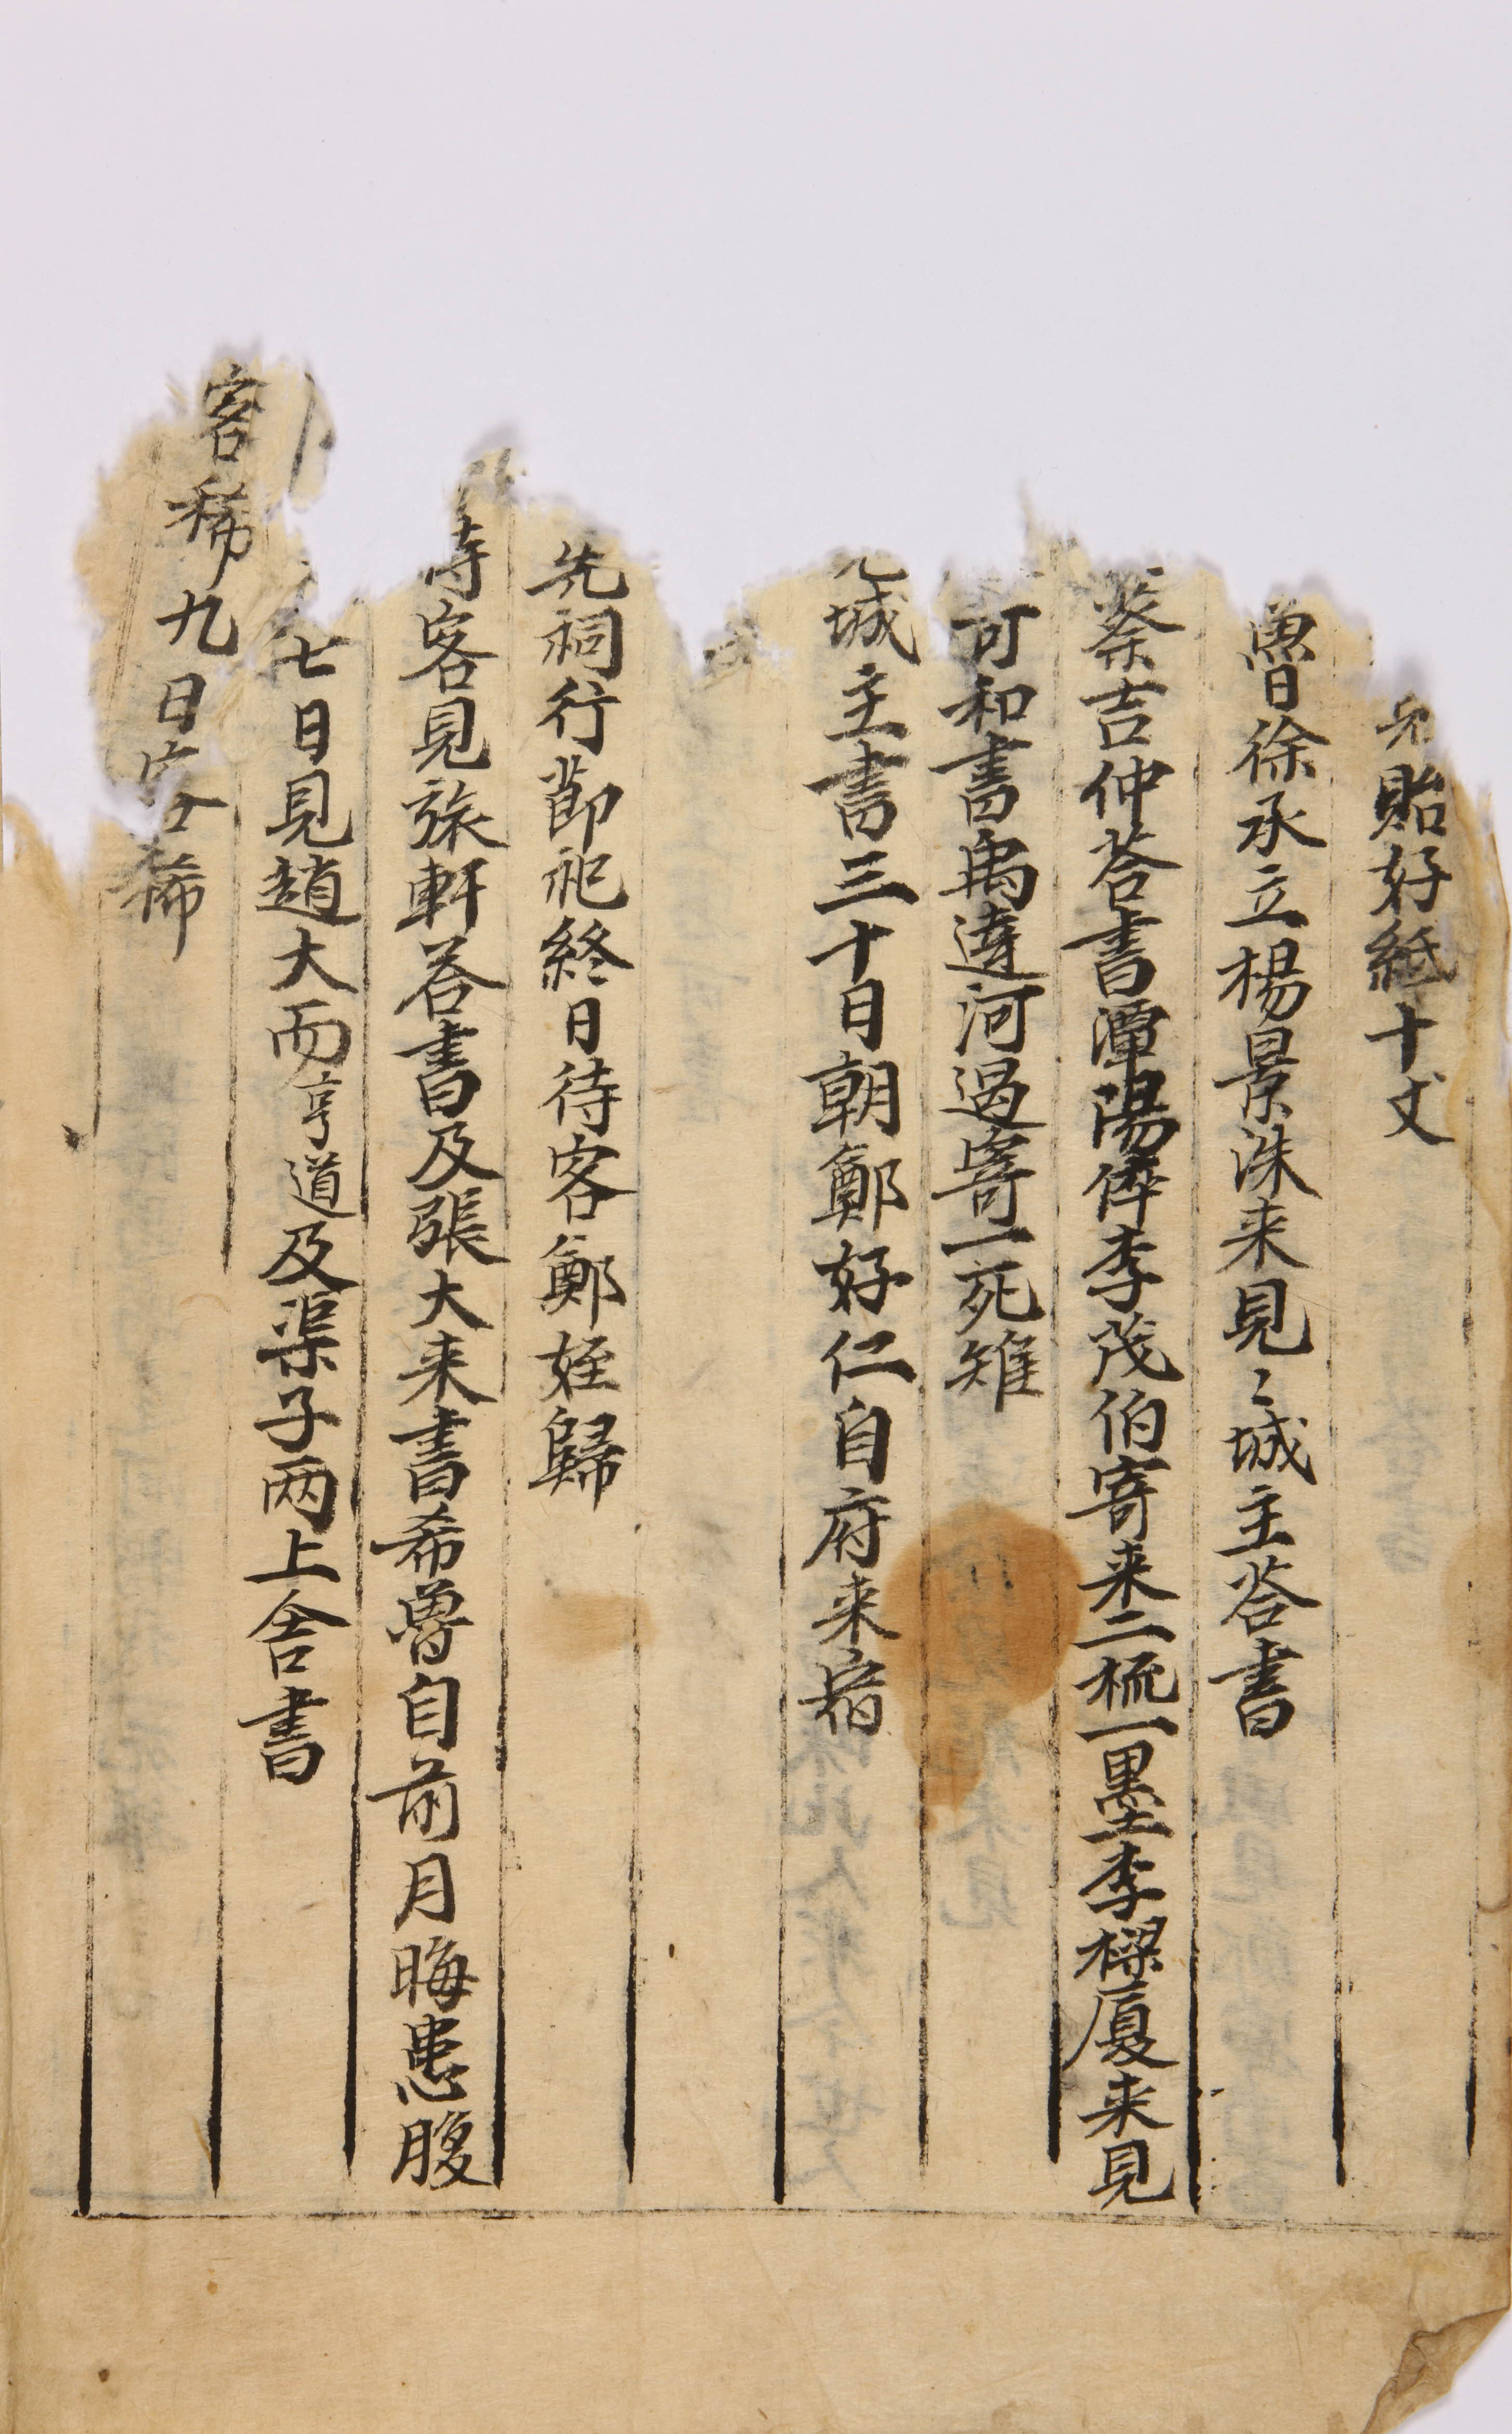 貽好紙十丈
魯日徐承立楊景洙来見〻城主答書
蔡吉仲答書潭陽倅李茂伯寄来二梳一墨李樑廈来見
可和書禹達河過寄一死雉
城主書三十日朝鄭好仁自府来宿
先祠行節祀終日待客鄭姪歸
待客見旅軒答書及張大来書希魯自前月晦患腹
七日見趙大而亨道及渠子两上舍書
客稀九日客稀